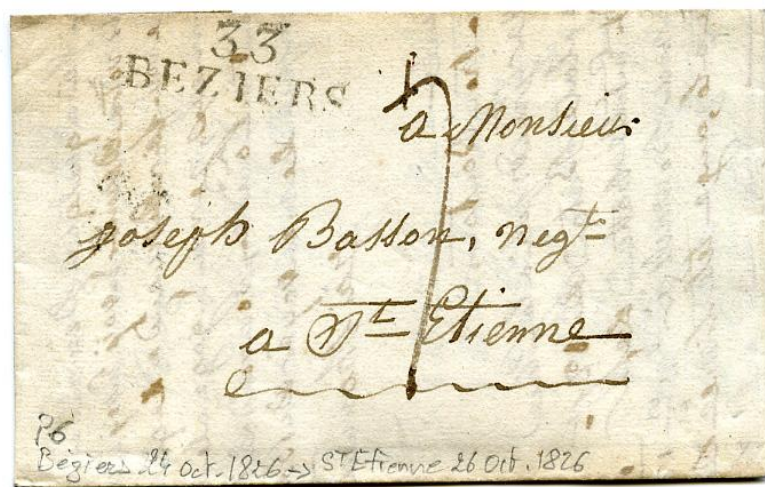 33
BEZIERS
a Monsieur
joseph Basson, negt
a St Etienne
P6
Béziers 24 oct. 1826 -> St Etienne 26 Oct. 1826